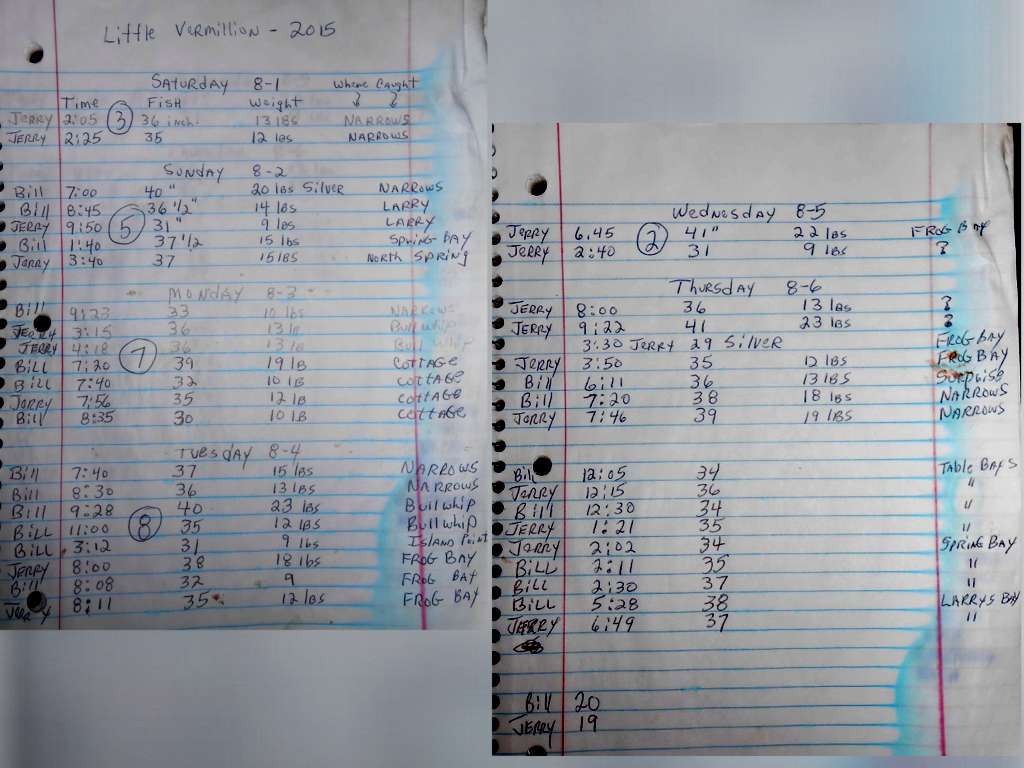 Little Vermillion - 2015
SATURDAY 8-1 Where Caught
Time FISH Weight
JERRY 2:05 ③ 36 inch 13 lBS NARROWS
JERRY 2:25 35 12 lBS NARROWS
SUNDAY 8-2
Bill 7:00 40" 20 lBS Silver NARROWS
Bill 8:45 36 1/2" 14 lBS LARRY
JERRY 9:50 ⑤ 31" 9 lBS LARRY
Bill 1:40 37 1/2 15 lbs SPRING BAY
JERRY 3:40 37 15 lBS North Spring
MONDAY 8-3
Bill 9:23 33 10 lbs NARROWS
JERRY 3:15 36 13 ll Bullwhip
JERRY 4:18 ⑦ 36 13 lb Bull Whip
BILL 7:20 39 19 lB COTTAGE
BILL 7:40 32 10 lB COTTAGE
JERRY 7:56 35 12 lB COTTAGE
Bill 8:35 30 10 lB COTTAGE
TUESDAY 8-4
Bill 7:40 37 15 lBS NARROWS
Bill 8:30 36 13 lBS NARROWS
Bill 9:28 40 23 lBS Bullwhip
BILL 11:00 ⑧ 35 12 lBS Bullwhip
BILL 3:12 31 9 lbs ISLAND Point
JERRY 8:00 38 18 lbs FROG BAY
Bill 8:08 32 9 FROG BAY
JERRY 8:11 35 12 lBS FROG BAY
Wednesday 8-5
JERRY 6.45 ② 41" 22 lBS FROG BAY
JERRY 2:40 31 9 lBS ?
THURSDAY 8-6
JERRY 8:00 36 13 lBS ?
JERRY 9:22 41 23 lBS ?
3:30 JERRY 29 SILVER FROG BAY
JERRY 3:50 35 12 lBS FROG BAY
Bill 6:11 36 13 lBS Surpise
Bill 7:20 38 18 lBS NARROWS
JERRY 7:46 39 19 lBS NARROWS
Bill 12:05 34 Table BAYS
JERRY 12:15 36 "
Bill 12:30 34 "
JERRY 1:21 35 "
JERRY 2:02 34 SPRING BAY
BILL 2:11 35 "
BILL 2:30 37 "
BILL 5:28 38 LARRYS BAY
JERRY 6:49 37 "
Bill 20
JERRY 19